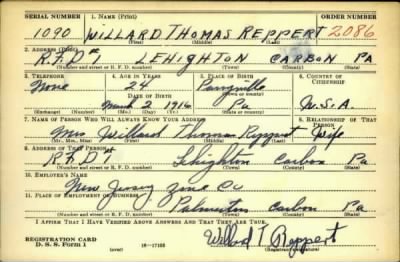 SERIAL NUMBER 1. NAME (Print) ORDER NUMBER
1090 WILLARD THOMAS REPPERT 2086
(First) (Middle) (Last)
2. ADDRESS (Print)
R.F.D #1 LEHIGHTON CARBON PA
(Number and street or R. F. D. number) (Town) (County) (State)
3. TELEPHONE 4. AGE IN YEARS 5. PLACE OF BIRTH 6. COUNTRY OF CITIZENSHIP
None 24 Parryville
DATE OF BIRTH (Town or county)
March 2 1916 Pa U.S.A.
(Exchange) (Number) (Mo.) (Day) (Yr.) (State or country)
7. NAME OF PERSON WHO WILL ALWAYS KNOW YOUR ADDRESS 8. RELATIONSHIP OF THAT PERSON
Mrs Willard Thomas Reppert Wife
(Mr., Mrs., Miss) (First) (Middle) (Last)
9. ADDRESS OF THAT PERSON
R.F.D 1 Lehighton Carbon Pa
(Number and street or R. F. D. number) (Town) (County) (State)
10. EMPLOYER'S NAME
New Jersey Zinc Co
11. PLACE OF EMPLOYMENT OR BUSINESS
Palmerton Carbon Pa
(Number and street or R. F. D. number) (Town) (County) (State)
I AFFIRM THAT I HAVE VERIFIED ABOVE ANSWERS AND THAT THEY ARE TRUE.
REGISTRATION CARD
D. S. S. FORM 1 (over) 16—17105 Willard T. Reppert
(Registrant's signature)